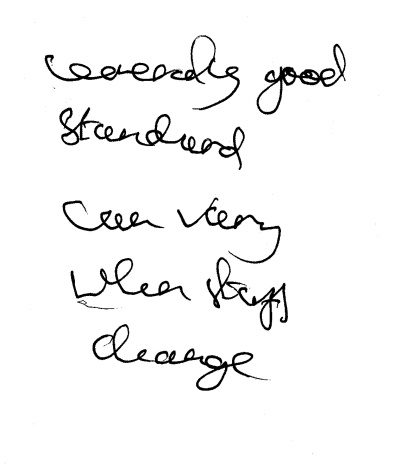 Generally good
standard
Can vary
when staff
change